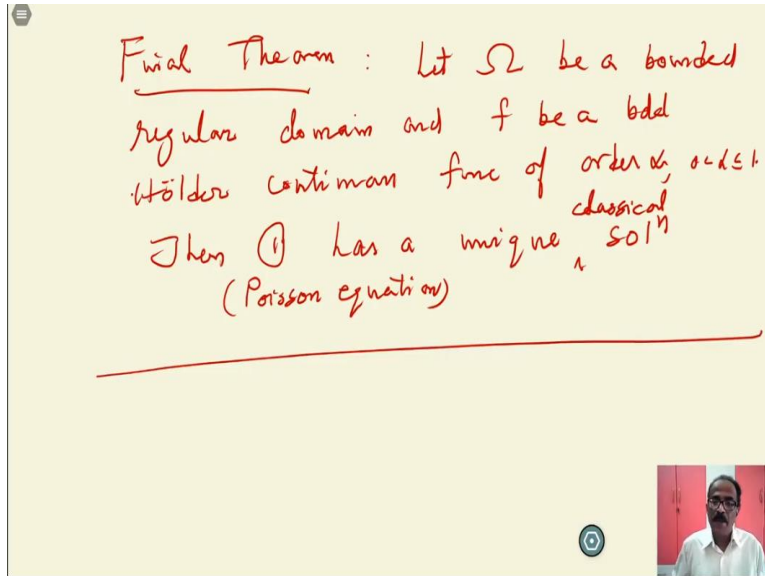 Final Theorem : Let Ω be a bounded
regular domain and f be a bdd
Hölder continuous func of order α, 0<α≤1.
Then ① has a unique classical solⁿ
(Poisson equation)